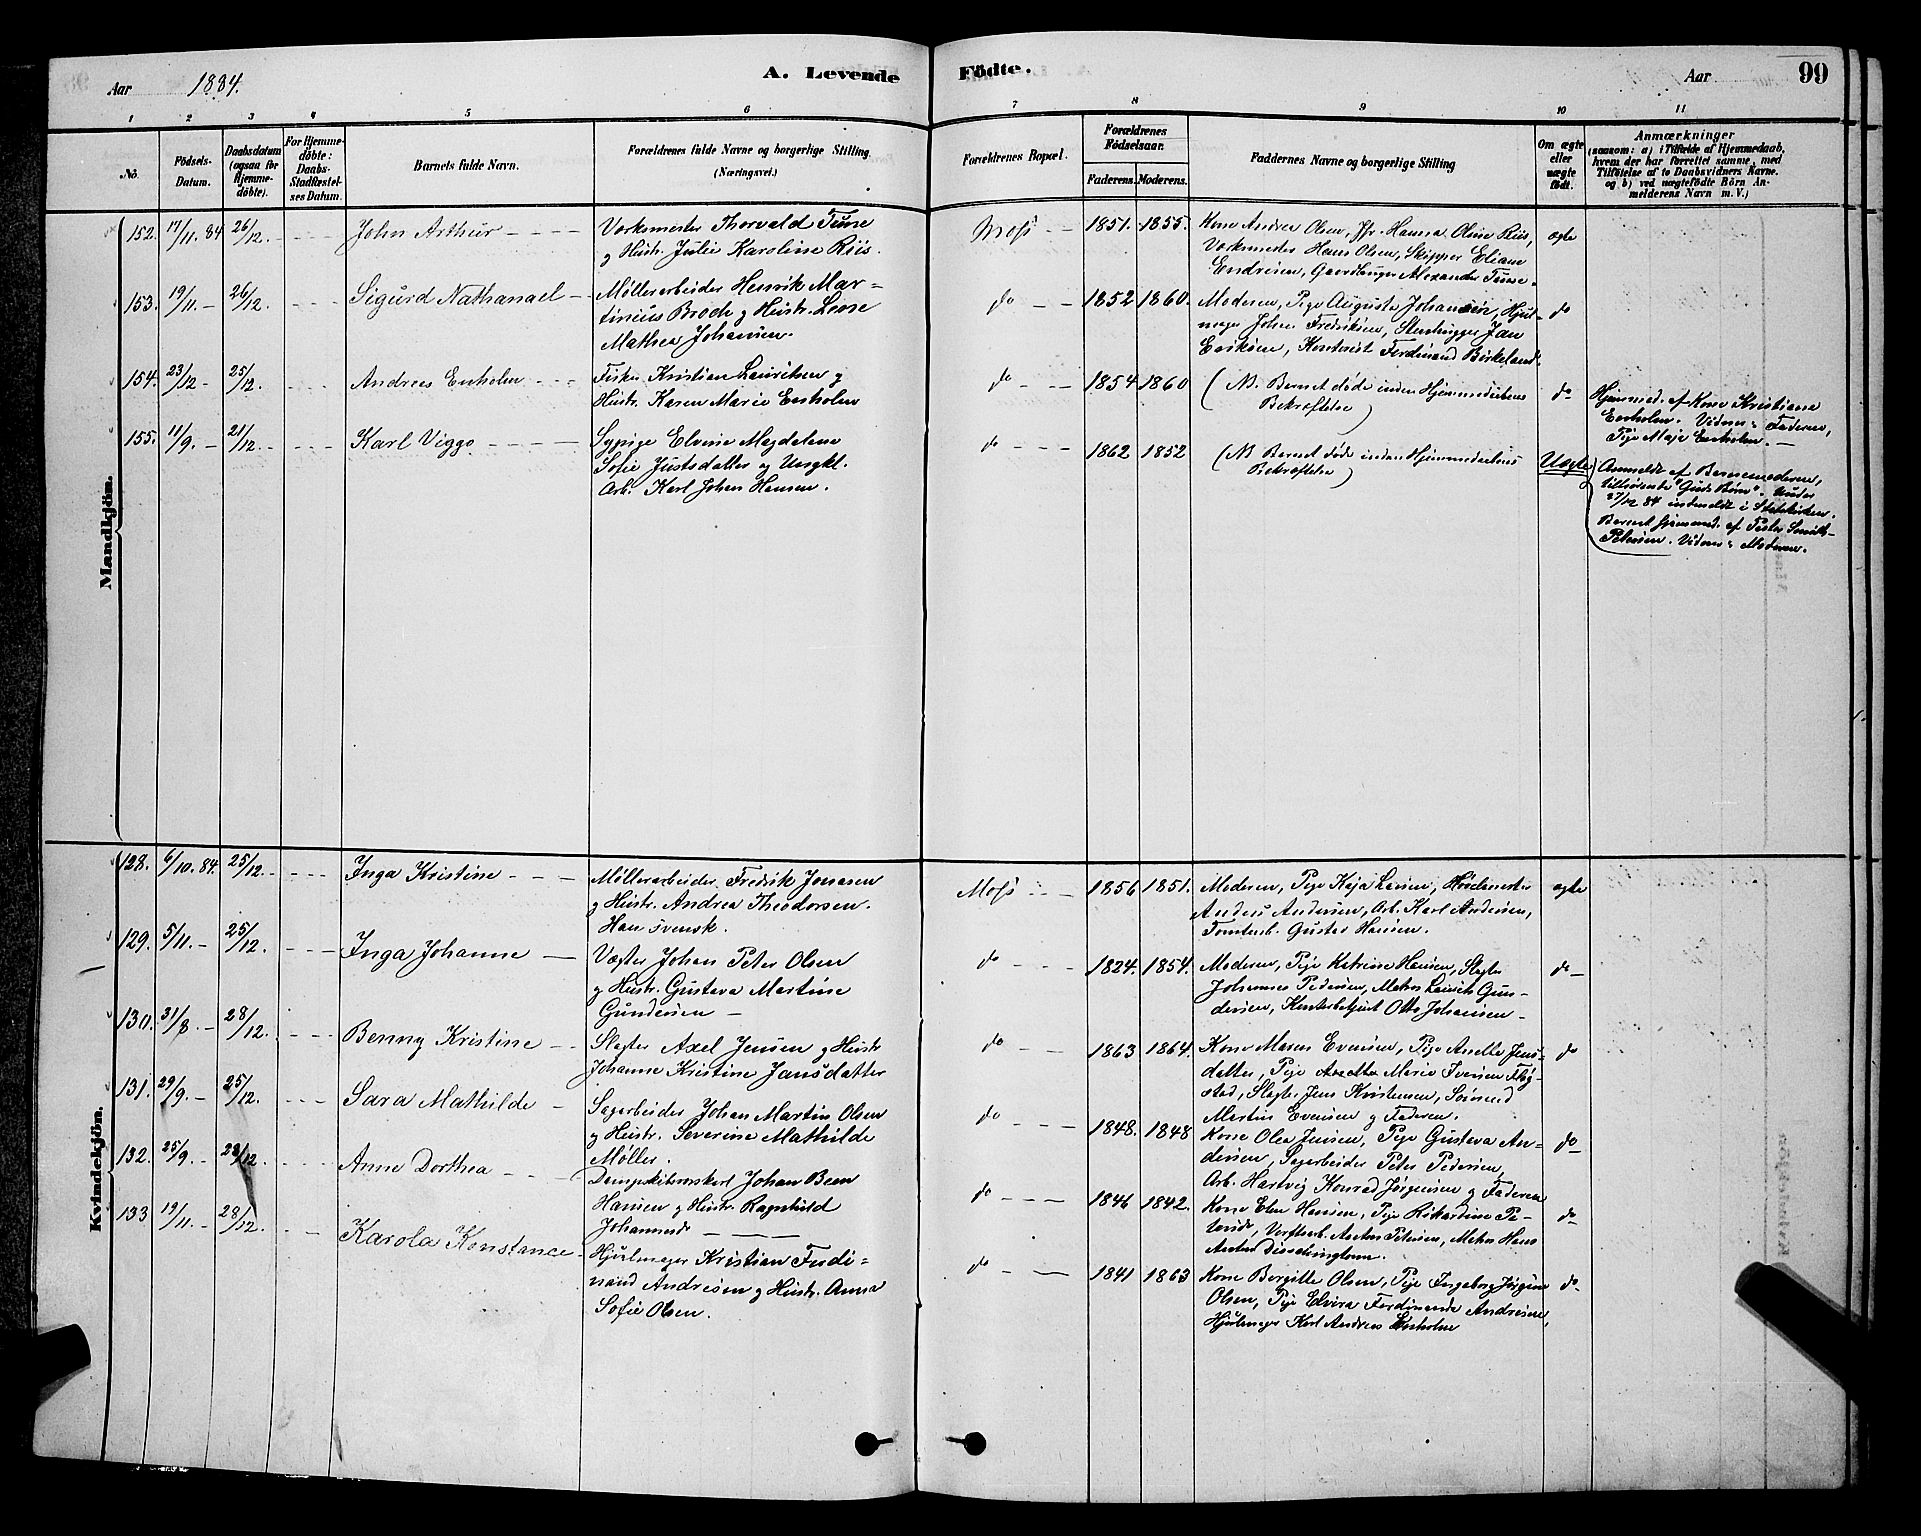 Aar 1884. A. Levende Födte. Aar 99
1 2 3 4 5 6 7 8 9 10 11
No. Födsels-Datum. Daabsdatum (ogsaa for Hjemme-döbte). For Hjemme-döbte: Daabs-Stadfæstel-ses Datum. Barnets fulde Navn. Forældrenes fulde Navne og borgerlige Stilling. (Næringsvei.) Forældrenes Bopæl. Forældrenes Födselsaar. Faderens. Moderens. Faddernes Navne og borgerlige Stilling Om ægte eller uægte födt. Anmærkninger (saasom: a) i Tilfælde af Hjemmedaab, hvem der har forrettet samme, med Tilföielse af to Daabsvidners Navne. og b) ved uægtefödte Börn An-melderens Navn m. V.)
Mandkjön.
152. 17/11. 84 26/12. John Arthur Værksmester Thorvald Tune
og Hustr. Julie Karoline Riis.
Moss 1851. 1855. Kone Andrea Olsen, Jfr. Hanna Oline Riis,
Værksmester Hans Olsen, Skipper Eliam
Endresen, Gaardbruger Alexander Tune.
ægte
153. 19/11. 26/12. Sigurd Nathanael Møllerarbeider Henrik Mar-
tinius Brode og Hustr. Leose
Mathea Johansen.
do 1852 1860. Moderen, Pige Augusta Johansen, Hjul-
mager Johan Fredriksen, Stenhugger Jan
Eriksen, Kontorist Ferdinand Birkeland.
do
154. 23/12 25/12. Andreas Enholm Fisker Kristian Lauritsen og
Hustr. Karen Marie Enholm
do 1854 1860 (NB. Barnet døde inden Hjemmedaabens
Bekræftelse)
do Hjemmed. af Kone Kristiane
Enholm. Vidner: Faderen,
Pige Maje Enholm.
155. 11/9. 21/12. Karl Viggo Sypige Elvine Magdalene
Sofie Justsdatter og Ungkl.
Arb. Karl Johan Hansen.
do 1862 1852 (NB Barnet døde inden Hjemmedaabens
Bekræftelse)
Uægte Anmeldt af Barnemoderen,
tilhørende "Guds Børn". Under
27/12 84 indmeldt i Statskirken.
Barnet hjemmed. af Pastor Smith-
Petersen. Vidner: Moderen.
Kvindekjön.
128. 6/10. 84. 25/12. Inga Kristine Møllerarbeider Fredrik Jonasen
og Hustr. Andrea Theodorsen.
Han svensk.
Moss 1856 1851. Moderen, Pige Kaja Larsen,
Anders Andersen, Arb. Karl Andersen,
Tomtearb. Gustav Hansen.
ægte
129. 5/11. 25/12. Inga Johanne Vægter Johan Peter Olsen
og Hustr. Gustava Martine
Gundersen
do 1824. 1854. Moderen, Pige Katrine Hansen, Slagter
Johannes Pedersen, Matros Laurits Gun-
dersen, Kontorbetjent Otto Johansen
do
130. 31/8. 28/12. Benny Kristine Slagter Axel Jensen og Hustr.
Johanne Kristine Jansdatter
do 1863 1864. Kone Maren Evensen, Pige Anette Jens-
datter, Pige Anette Marie Iversen Fløg-
stad, Slagter Jens Kristensen, Sømand
Martin Evensen og Faderen.
do
131. 29/9. 25/12. Sara Mathilde Sagarbeider Johan Martin Olsen
og Hustr. Severine Mathilde
Møller.
do 1848. 1848 Kone Olea Jensen, Pige Gustava An-
dersen, Sagarbeider Peter Pedersen,
Arb. Hartvig Konrad Jørgensen og Faderen
do
132. 25/9. 28/12. Anne Dorthea Johan Been
Hansen og Hustr. Ragnhild
Johannesd.
do 1846 1842. Kone Elen Hansen, Pige Rikardine Pe-
tersen, Verftsarb. Anton Petersen, Matros Hans
Anton Disselrington.
do
133 19/11. 28/12. Karola Konstance Hjulmager Kristian Ferdi-
nand Andresen og Hustr. Anna
Sofie Olsen.
do 1841 1863 Kone Borgille Olsen, Pige Ingeborg Jørgine
Olsen, Pige Elvira Ferdinande Andresen,
Hjulmager Karl Andreas Enholm
do